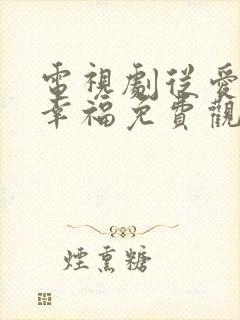 電視劇從愛
幸福免費觀
煙熏糖